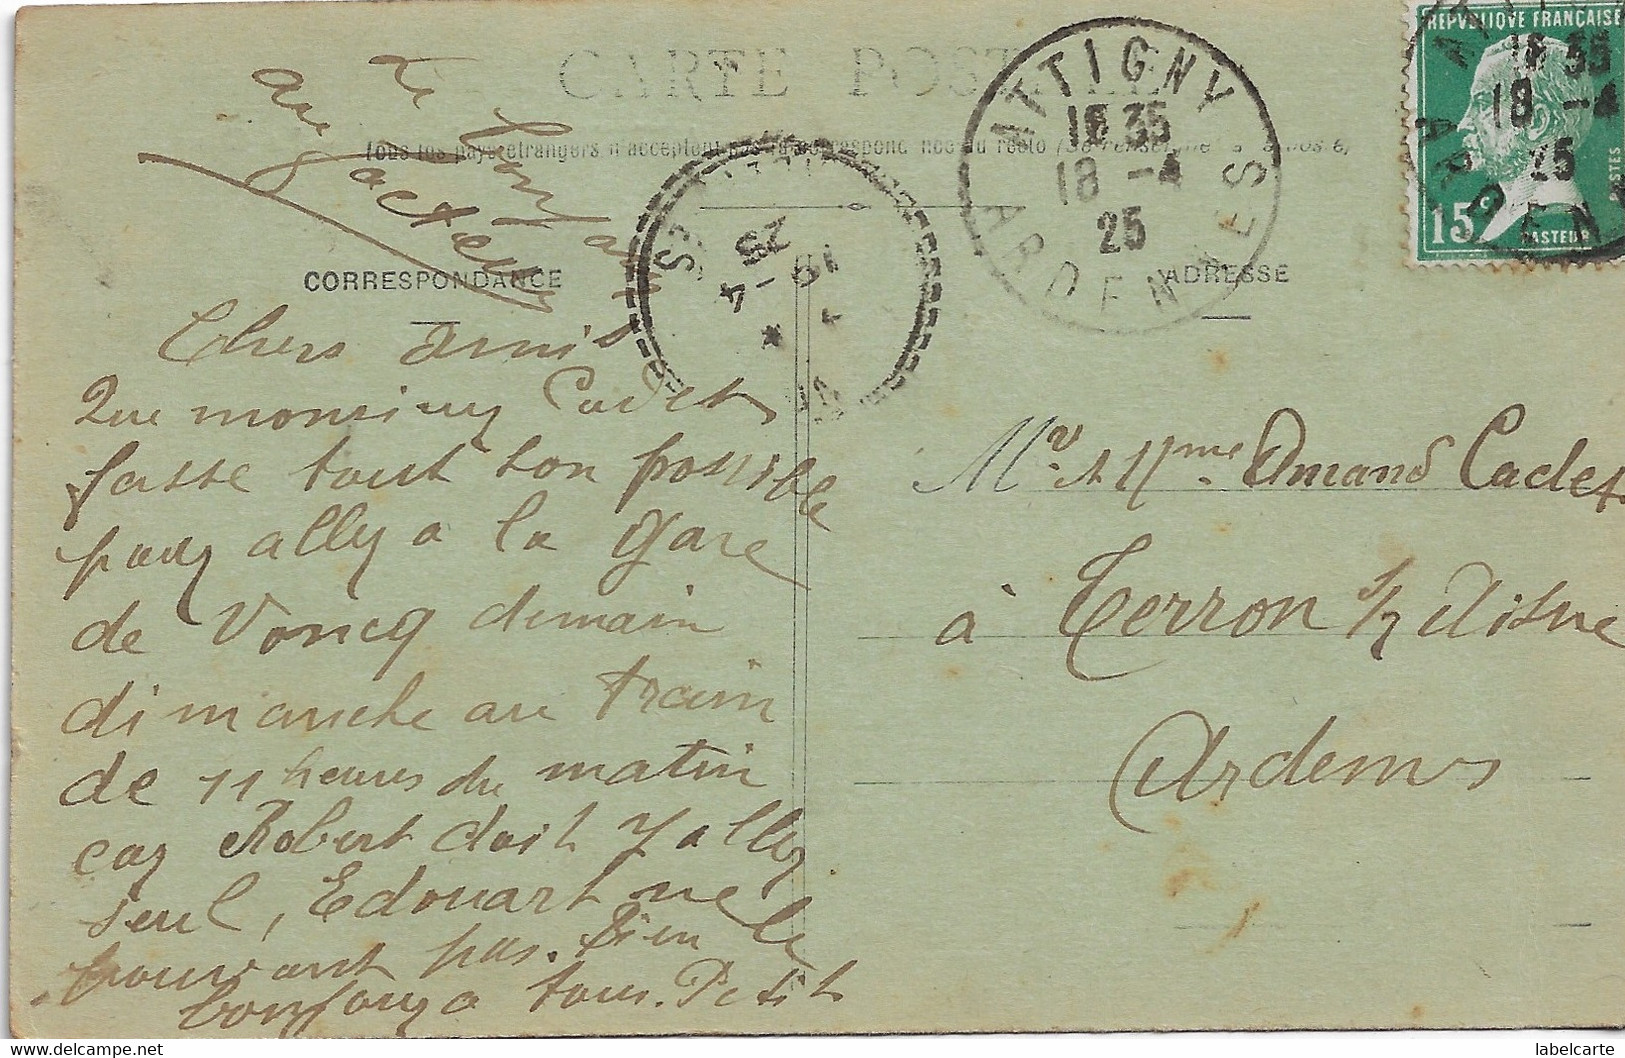 CARTE POSTALE
Tous les pays étrangers n'acceptent pas la correspondance au recto
CORRESPONDANCE
ADRESSE
ATTIGNY
18 35
18 -4
25
ARDENNES
REPUBLIQUE FRANÇAISE
15c
PASTEUR
POSTES
19 -4
25
Le
au facteur
Chers amis
Que monsieuy Cadet
fasse tout son possible
pouy ally a la gare
de Voncq demain
dimanche au train
de 11 heures du matin
cay Robert doit y ally
seul, Edouart ne le
pouvant pas. Bien
bonjouy a tous. Petit
Mr et Mme Amand Cadet
à Terron s/ Aisne
Ardennes
labelcarte